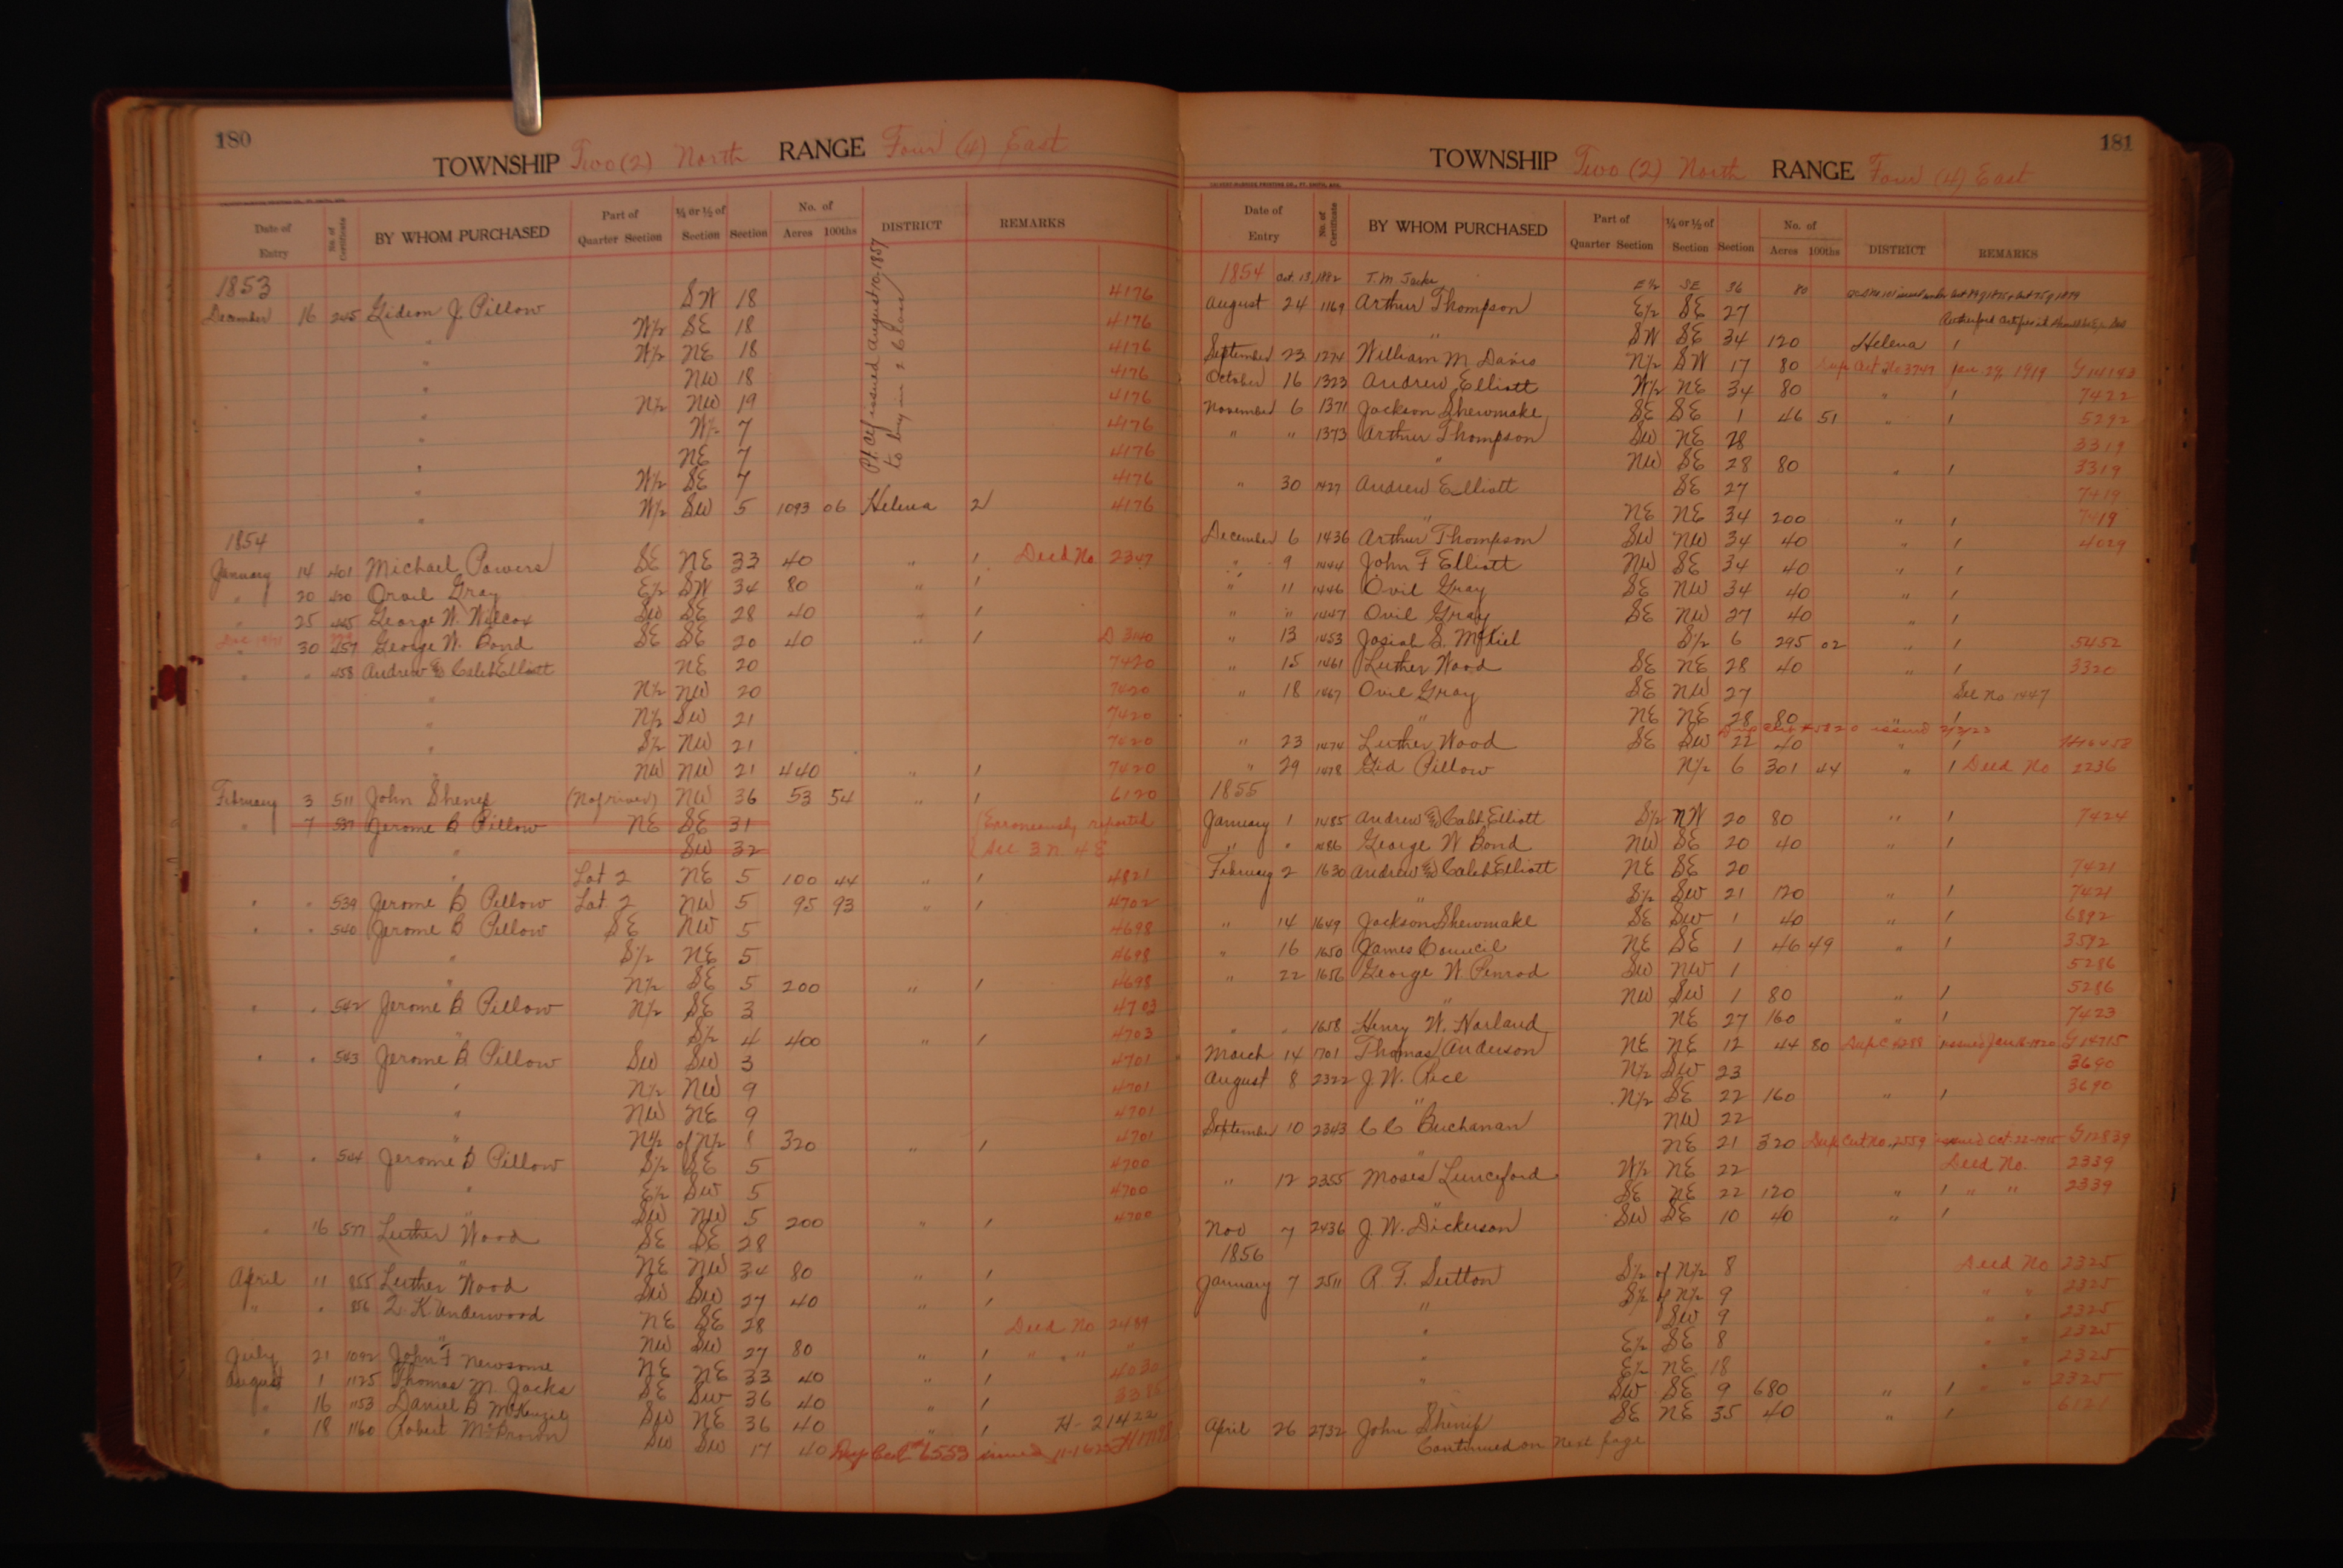 180
TOWNSHIP Two (2) North RANGE Four (4) East
Date of Entry No. of Certificate BY WHOM PURCHASED Part of Quarter Section ¼ or ½ of Section Section No. of Acres 100ths DISTRICT REMARKS
1853
December 16 245 Gideon J. Pillow SW 18 4176
" W½ SE 18 4176
" W½ NE 18 4176
" NW 18 4176
" N½ NW 19 4176
" W½ 7 4176
" NE 7 4176
" W½ SE 7 4176
" W½ SW 5 1093 06 Helena 2 4176
Pt. Ctf issued August 10-1857
1854
January 14 401 Michael Powers SE NE 33 40 " 1 Deed No 2347
" 20 420 Orvil Gray E½ SW 34 80 " 1
" 25 445 George W. Wilcox SW SE 28 40 " 1
" 30 457 George W. Bond SE SE 20 40 " 1 D 3140
" " 458 Andrew & Caleb Elliott NE 20 7420
" N½ NW 20 7420
" N½ SW 21 7420
" S½ NW 21 7420
" NW NW 21 440 " 1 7420
February 3 511 John (N of river) NW 36 53 54 " 1 6120
" 7 537 Jerome B Pillow NE SE 31 Erroneously reported
" SW 32 See 3 N. 4 E
" Lot 2 NE 5 100 44 " 1 4821
" " 539 Jerome B Pillow Lot 2 NW 5 95 93 " 1 4702
" " 540 Jerome B Pillow SE NW 5 4698
" S½ NE 5 4698
" N½ SE 5 200 " 1 4698
" " 542 Jerome B Pillow N½ SE 3 4703
" S½ 4 400 " 1 4703
" " 543 Jerome B Pillow SW SW 3 4701
" N½ NW 9 4701
" NW NE 9 4701
" N½ of N½ 8 320 " 1 4701
" " 544 Jerome B Pillow S½ SE 5 4700
" E½ SW 5 4700
" SW NW 5 200 " 1 4700
" 16 577 Luther Wood SE SE 28
" NE NW 34 80 " 1
April 11 855 Luther Wood SW SW 27 40 " 1
" " 856 L. K Underwood NE SE 28 Deed No 2489
" NW SW 27 80 " 1 " " "
July 21 1092 John F Newsome NE NE 33 40 " 1 4030
August 1 1125 Thomas M. Jacks SE SW 36 40 " 1
" 16 1153 Daniel B McKenzie SW NE 36 40 " 1 H-21422
" 18 1160 Robert McBrown SW SW 17 40 Dup Cert # 6553 issued
181
TOWNSHIP Two (2) North RANGE Four (4) East
Date of Entry No. of Certificate BY WHOM PURCHASED Part of Quarter Section ¼ or ½ of Section Section No. of Acres 100ths DISTRICT REMARKS
1854 Oct. 13, 1882 T. M. Jacks E½ SE 36 80
August 24 1169 Arthur Thompson E½ SE 27
" SW SE 34 120 Helena 1
September 23 1274 William M Davis N½ SW 17 80 Dup Cert No 3747 Jan 29, 1919 G14193
October 16 1323 Andrew Elliott W½ NE 34 80 " 1 7422
November 6 1371 Jackson Shewmake SE SE 1 46 51 " 1 5292
" " 1373 Arthur Thompson SW NE 28 3319
" NW SE 28 80 " 1 3319
" 30 1427 Andrew Elliott SE 27 7419
" NE NE 34 200 " 1 7419
December 6 1436 Arthur Thompson SW NW 34 40 " 1 4029
" 9 1444 John F Elliott NW SE 34 40 " 1
" 11 1446 Ovil Gray SE NW 34 40 " 1
" " 1447 Ovil Gray SE NW 27 40 " 1
" 13 1453 Josiah S. McKiel S½ 6 295 02 " 1 5452
" 15 1461 Luther Wood SE NE 28 40 " 1 3320
" 18 1467 Ovil Gray SE NW 27 See No 1447
" NE NE 28 80 " 1
Dup Cert #5820 issued
" 23 1474 Luther Wood SE SW 22 40 "
" 29 1478 Gid Pillow N½ 6 301 44 " 1 Deed No 2236
1855
January 1 1485 Andrew & Caleb Elliott S½ NW 20 80 " 1 7424
" " 1486 George W Bond NW SE 20 40 " 1
February 2 1630 Andrew & Caleb Elliott NE SE 20 7421
" S½ SW 21 120 " 1 7421
" 14 1649 Jackson Shewmake SE SW 1 40 " 1 6892
" 16 1650 James Council NE SE 1 46 49 " 1 3592
" 22 1656 George W Penrod SW NW 1 5286
" NW SW 1 80 " 1 5286
" " 1658 Henry W. Norland NE 27 160 " 1 7423
March 14 1701 Thomas Anderson NE NE 12 44 80 Dup C 4288 issued Jan 8-1920 G14715
August 8 2322 J. W. Rice N½ SW 23 3690
" N½ SE 22 160 " 1 3690
September 10 2343 C C Buchanan NW 22
" NE 21 320 Dup Cert No. 2559 issued Oct. 22-1915 G12839
" 12 2355 Moses Lunceford W½ NE 22 Deed No. 2339
" SE NE 22 120 " 1 " " 2339
Nov 7 2436 J. W. Dickerson SW SE 10 40 " 1
1856
January 7 2511 R. F. Sutton S½ of N½ 8 Deed No 2325
" S½ of N½ 9 " " 2325
" SW 9 " " 2325
" E½ SE 8 " " 2325
" E½ NE 18 " " 2325
" SW SE 9 680 " 1 " " 2325
April 26 2732 John SE NE 35 40 " 1 6121
Continued on next page